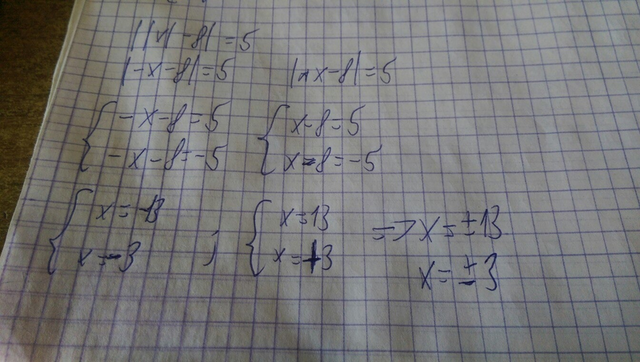 ||x|-8|=5
|-x-8|=5 |+x-8|=5
{ -x-8=5 { x-8=5
-x-8=-5 x-8=-5
{ x=-13 ; { x=13 => x=±13
x=-3 x=+3 x=±3